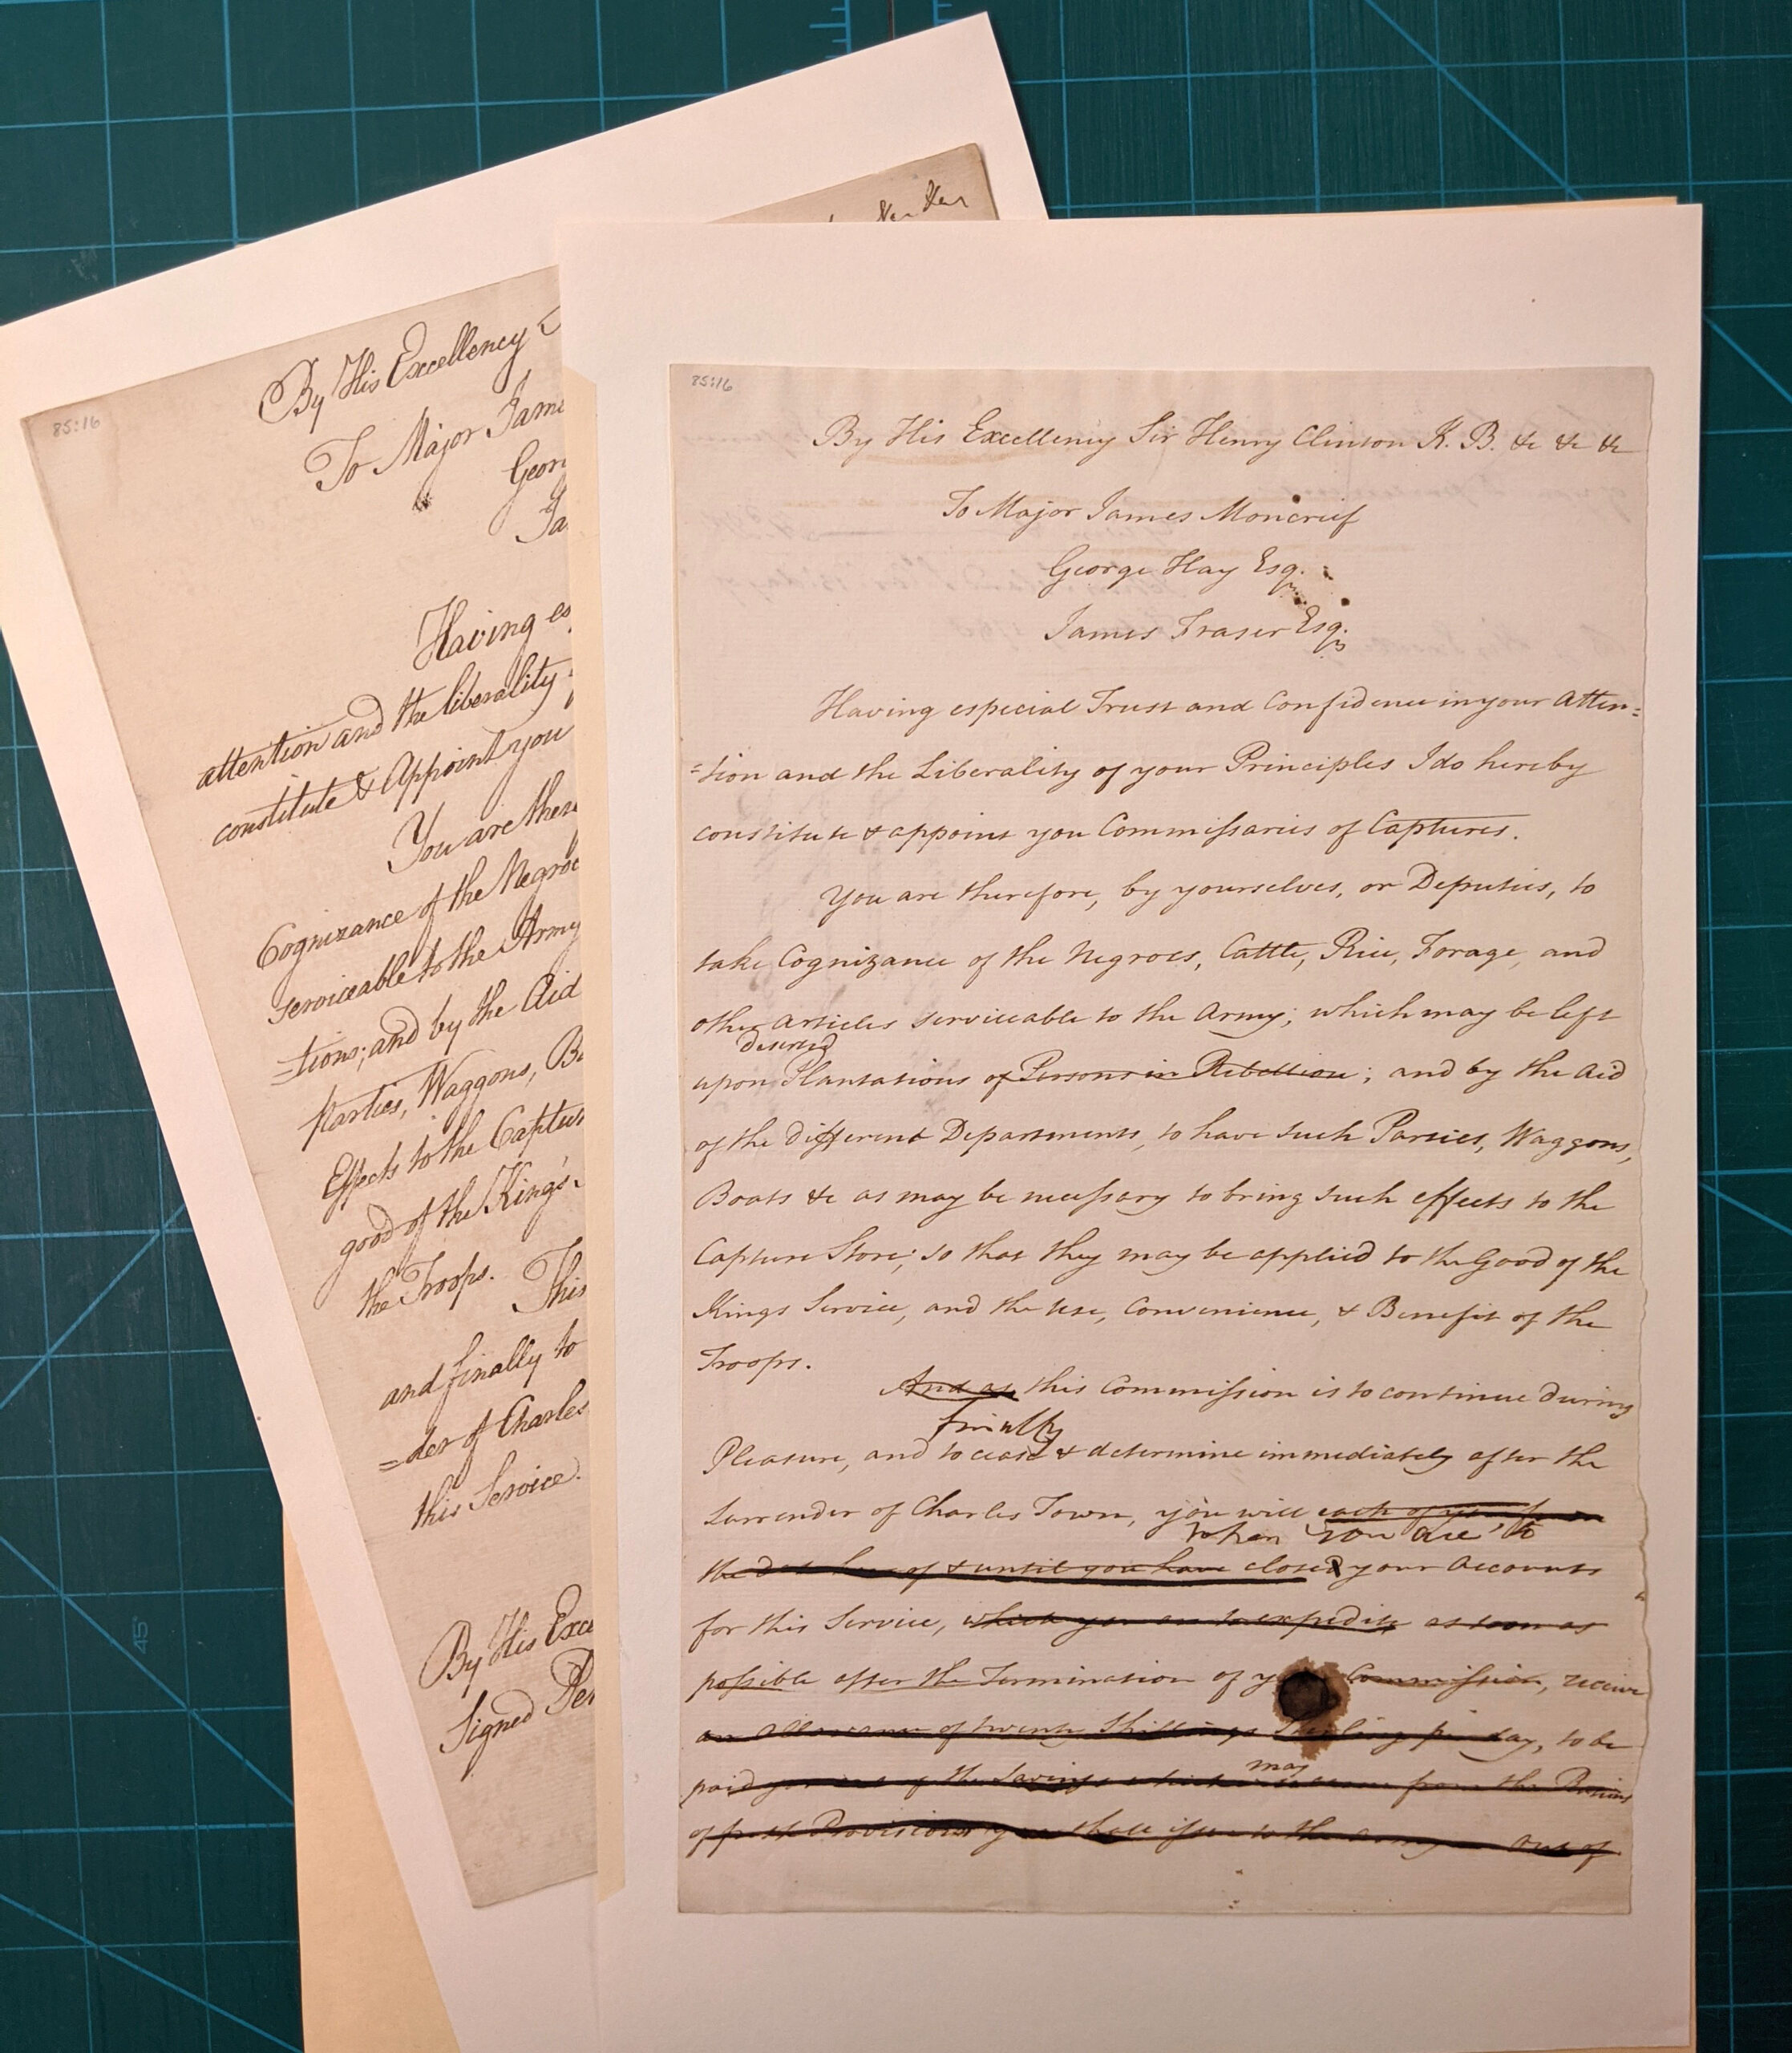 85:16
By His Excellency
To Major Jam
Geor
Ja
Having es
attention and the liberality
constitute & Appoint you
You are there
Cognizance of the Negroe
serviceable to the Army
=tions; and by the Aid
parties, Waggons, Bo
Effects to the Captur
good of the King's
the Troops. This
and finally to
=der of Charles
this Service.
By His Exce
Signed Pe
85:16
By His Excellency Sir Henry Clinton K. B. &c &c &c
To Major James Moncrief
George Hay Esqr.
James Fraser Esqr.
Having especial Trust and Confidence in your Atten=
=tion and the Liberality of your Principles I do hereby
constitute & appoint you Commissaries of Captures.
You are therefore, by yourselves, or Deputies, to
take Cognizance of the Negroes, Cattle, Rice, Forage, and
other Articles serviceable to the Army; which may be left
deserted
upon Plantations of Persons in Rebellion; and by the Aid
of the different Departments, to have such Parties, Waggons,
Boats &c as may be necessary to bring such effects to the
Capture Store; so that they may be applied to the Good of the
Kings Service, and the Use, Convenience, & Benefit of the
Troops.
And as this Commission is to continue during
finally
Pleasure, and to cease & determine immediately after the
Surrender of Charles Town, you will each of you from
when you are to
the date hereof & until you have closed your Accounts
for this Service, which you are to expedite as soon as
possible after the Termination of your Commission, receive
an Allowance of twenty Shillings Sterling pr day, to be
may
paid you out of the Savings which from the
of fresh Provisions you shall issue to the Army out of